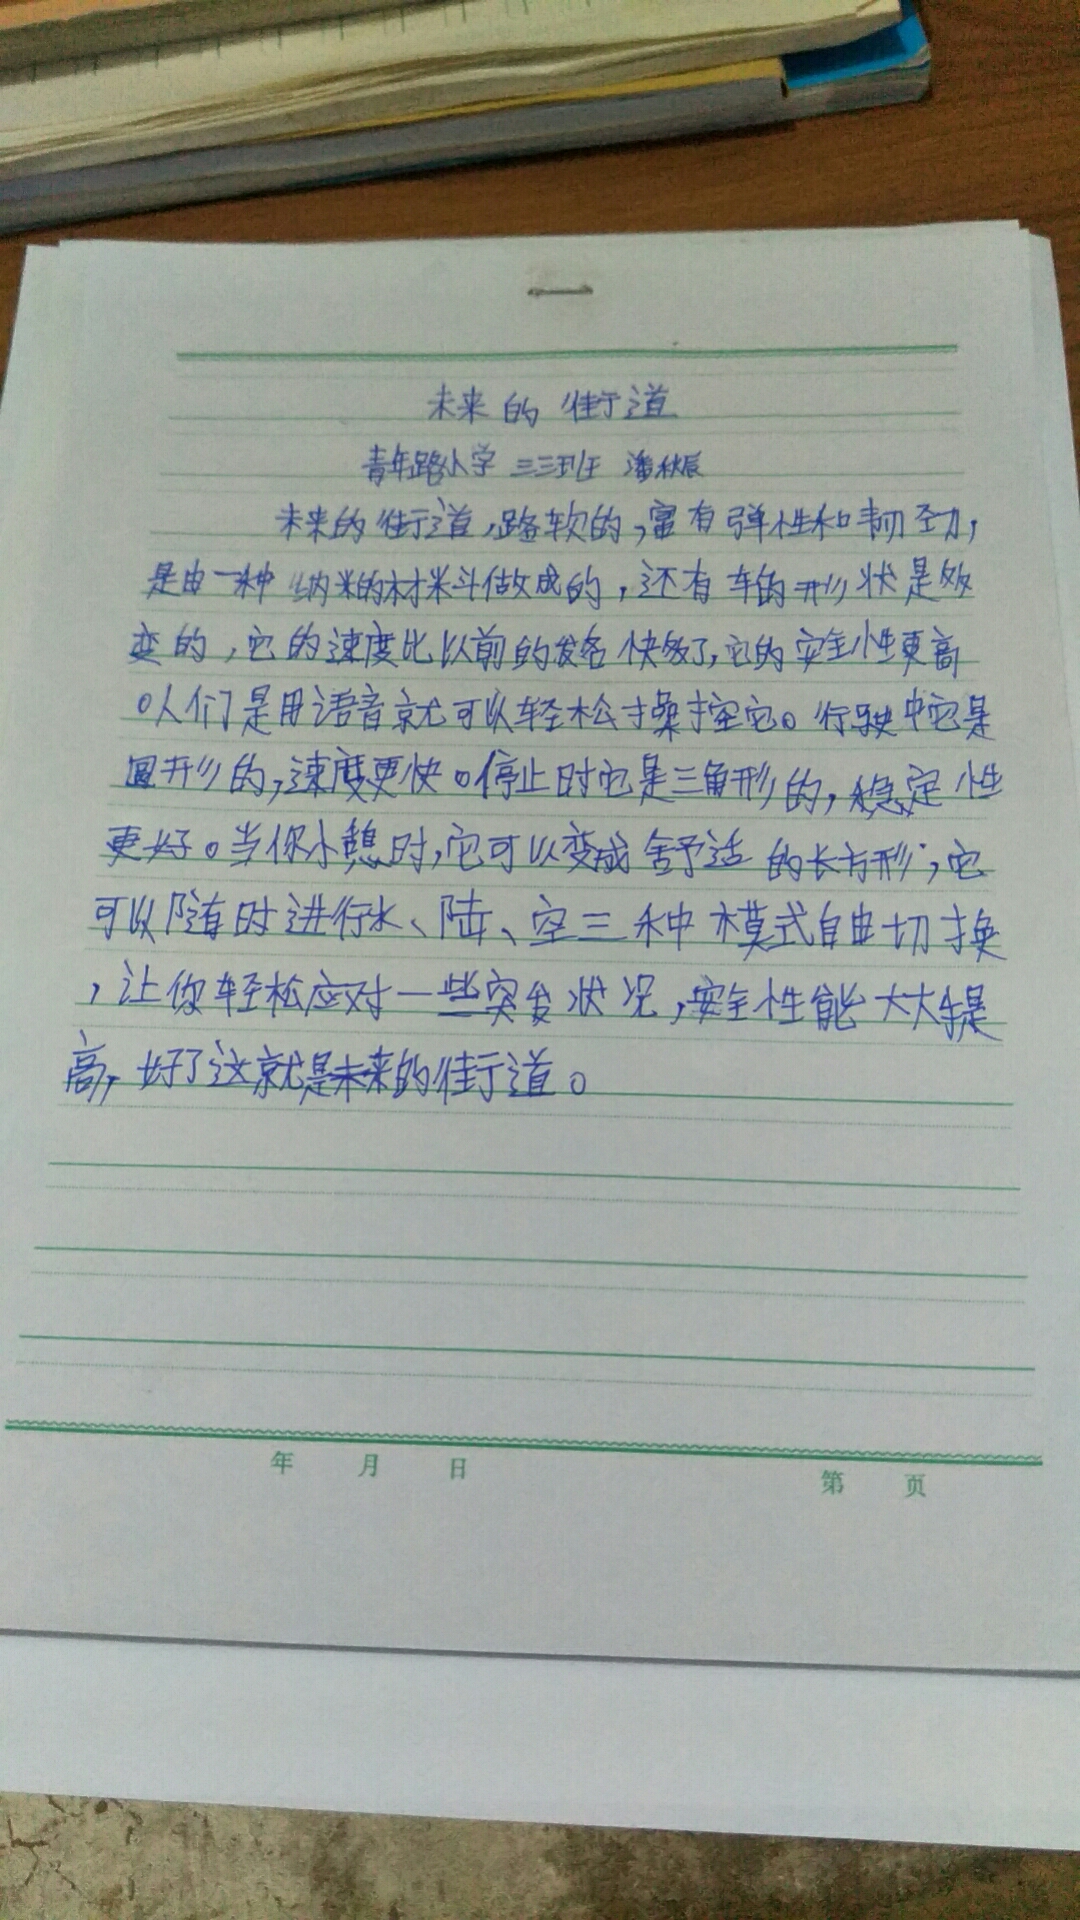 未来的街道
青年路小学 三三班 潘秋辰
未来的街道,路软的,富有弹性和韧劲,
是由一种纳米的材料做成的,还有车的形状是多
变的,它的速度比以前的发各快多了,它的安全性更高
。人们是用语音就可以轻松操控它。行驶中它是
圆形的,速度更快。停止时它是三角形的,稳定性
更好。当你小憩时,它可以变成舒适的长方形,它
可以随时进行水、陆、空三种模式自由切换
,让你轻松应对一些突发状况,安全性能大大提
高,好了这就是未来的街道。
年 月 日 第 页